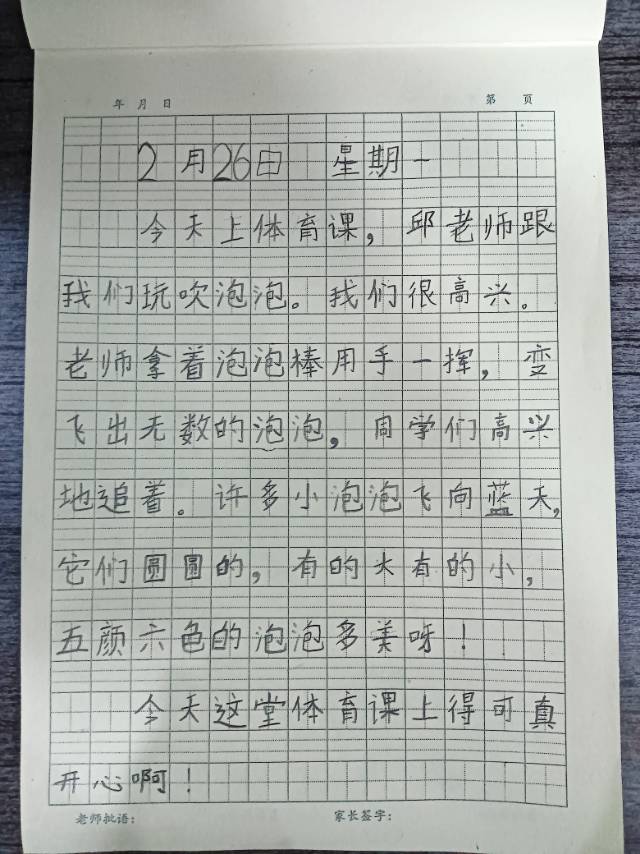 年 月 日 第 页
2月26日 星期一
今天上体育课，邱老师跟
我们玩吹泡泡。我们很高兴。
老师拿着泡泡棒用手一挥，变
飞出无数的泡泡，同学们高兴
地追着。许多小泡泡飞向蓝天，
它们圆圆的，有的大有的小，
五颜六色的泡泡多美呀！
今天这堂体育课上得可真
开心啊！
老师批语： 家长签字：